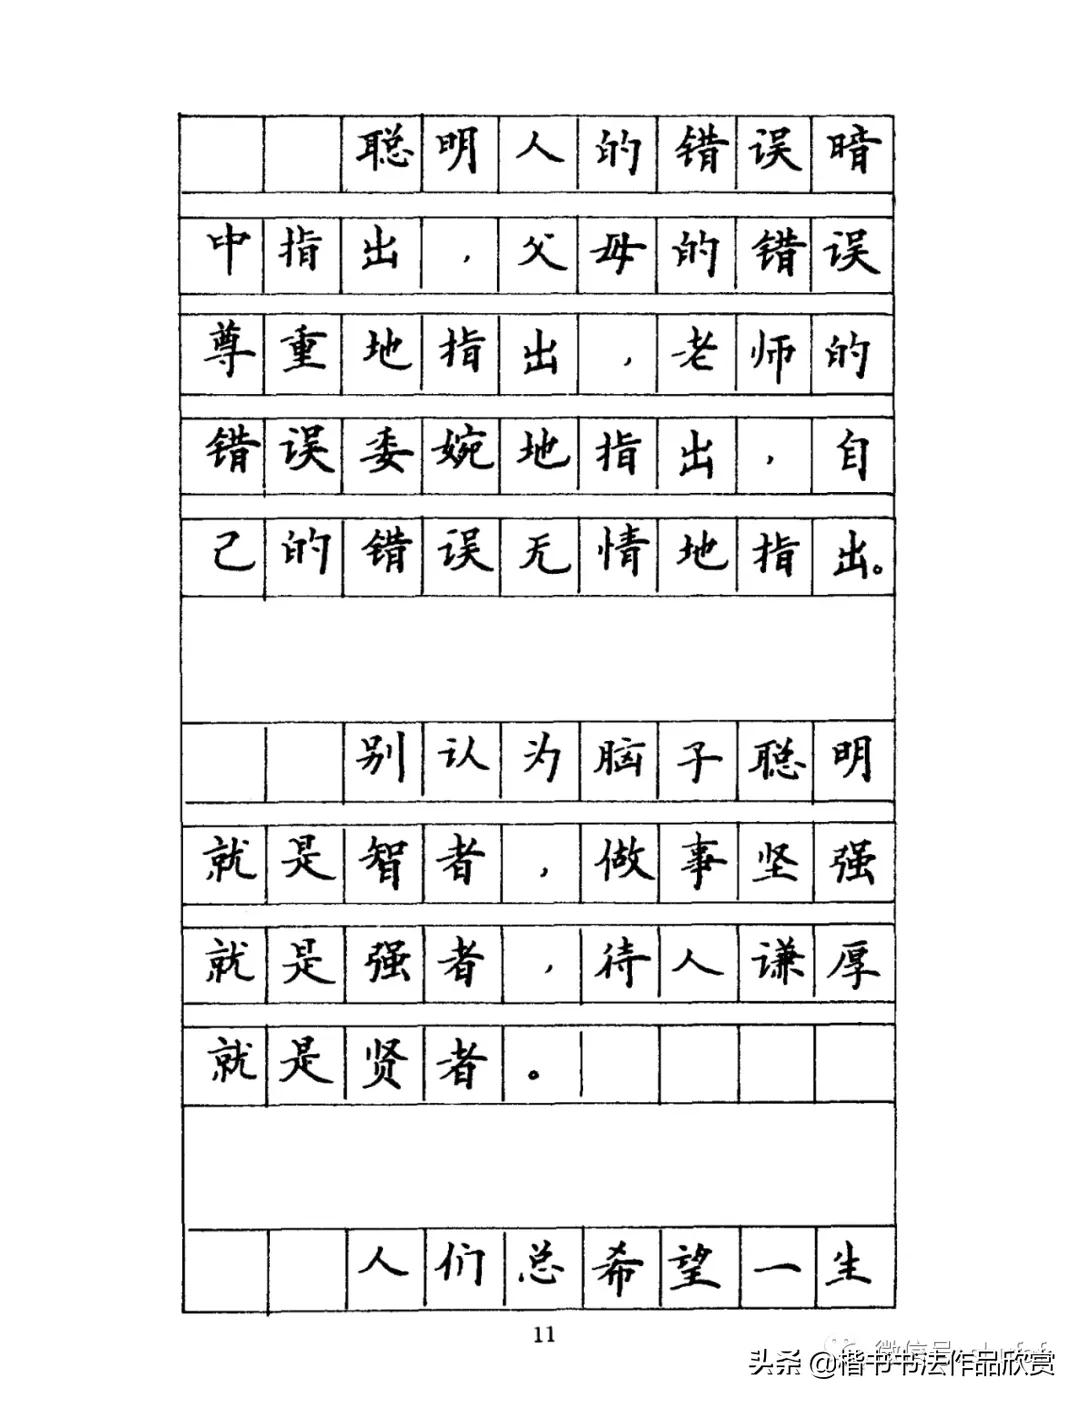 聪明人的错误暗
中指出，父母的错误
尊重地指出，老师的
错误委婉地指出，自
己的错误无情地指出。
别认为脑子聪明
就是智者，做事坚强
就是强者，待人谦厚
就是贤者。
人们总希望一生
11
微信号
头条@楷书书法作品欣赏